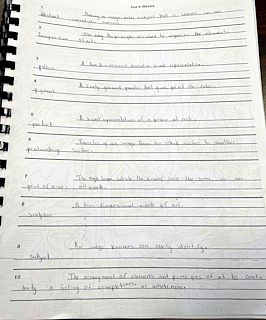 1
Having a recognizable subject that is shown in an
abstract
2
The way the principles are used to organize the elements
composition of art.
3
A two-dimensional visual representation.
picture
4
A finely ground powder that gives paint its color.
pigment
5
A visual representation of a person in art.
portrait
6
Transferring an image from an inked surface to another
printmaking surface.
7
The angle from which the viewer sees the scene in an
point of view art work.
8
A three-dimensional work of art.
sculpture
9
An image viewers can easily identify.
subject
10
The arrangement of elements and principles of art to create
unity a feeling of completeness or wholeness.